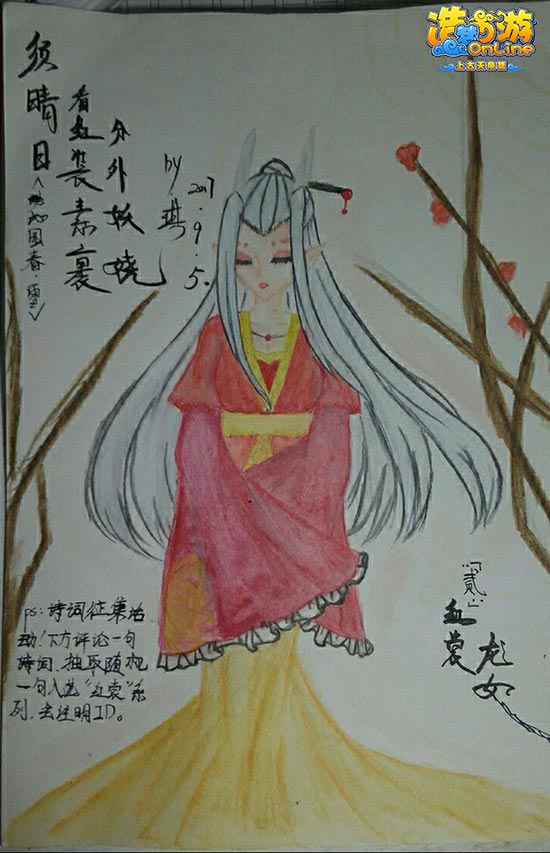 造梦西游
OnLine
上古天帝篇
须晴日
<沁园春·雪>
看红装素裹
分外妖娆
by
2017.9.5.
ps:诗词征集活
动!下方评论一句
诗词,抽取随机
一句入选“红裳”系
列,会注明ID。
“贰”
红裳
龙女